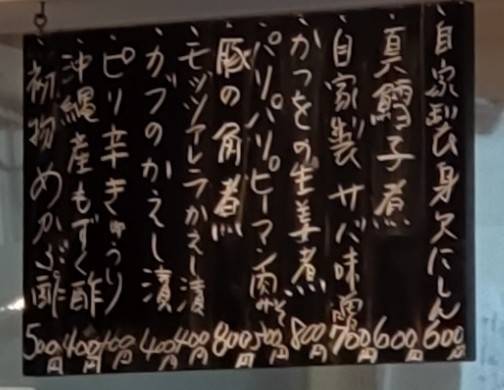 自家製身欠にしん 600円
真鱈子煮 600円
自家製サバ味噌 700円
かつをの生姜煮 800円
パリパリピーマン肉みそ 500円
豚の角煮 800円
モッツアレラかえし漬 400円
カブのかえし漬 400円
ピリ辛きゅうり 400円
沖縄産もずく酢 400円
初物めかぶ酢 500円